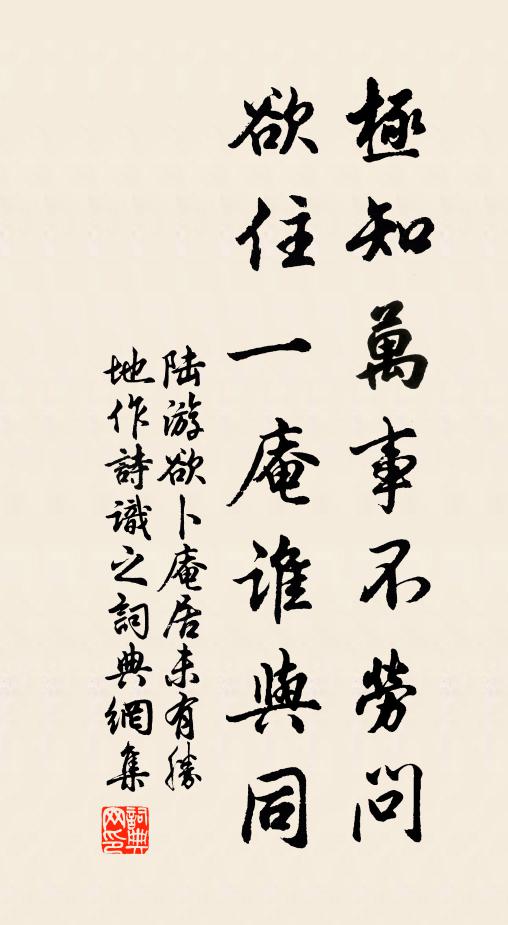 極知萬事不勞問
欲住一庵誰與同
陆游欲卜庵居未有勝
地作詩識之詞典網集
詞典
网印